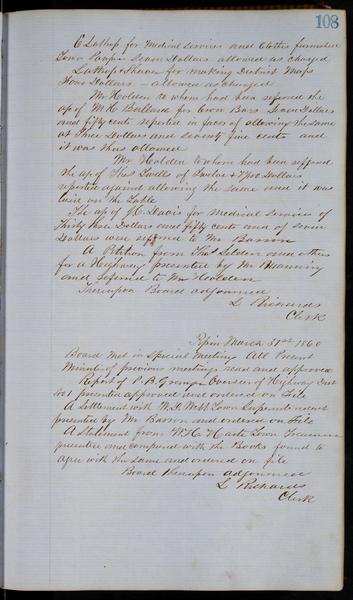 108
E Lathrop for Medical services and Clothes furnished
Town Pauper Seven Dollars allowed as charged
Lathrop & Shaw for making District Maps
Four Dollars — allowed as charged
Mr Holden to whom had been referred the
ap of M H Ballard for Crow Bars Seven Dollars
and fifty cents reported in favor of allowing the same
at Three Dollars and seventy five cents and
it was thus allowed
Mr Holden to whom had been referred
the ap of Thos for Twelve & 4/100 Dollars
reported against allowing the same and it was
laid on the Table
The ap of H. Davis for medical services of
Thirty three Dollars and fifty cents and of seven
Dollars were referred to Mr Barron
A Petition from Thos Selden and others
for a Highway presented by Mr Manning
and referred to Mr Holden
Thereupon Board adjourned
L Richards
Clerk
March 31st 1860
Board Met in Special Meeting All Present
Minutes of previous meetings read and approved
Report of P. B. Granger Overseer of Highway Dist
presented approved and ordered on File
A Settlement with Town Superintendent
presented by Mr Barron and ordered on File
A Statement from W. H. Town Treasurer
presented and compared with the Books found to
agree with the same and ordered on file
Board thereupon adjourned
L Richards
Clerk